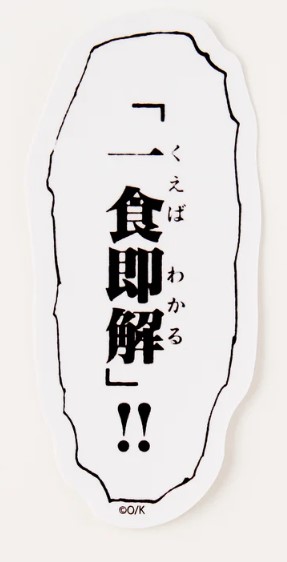 「一食即解」!!
くえば わかる
©O/K